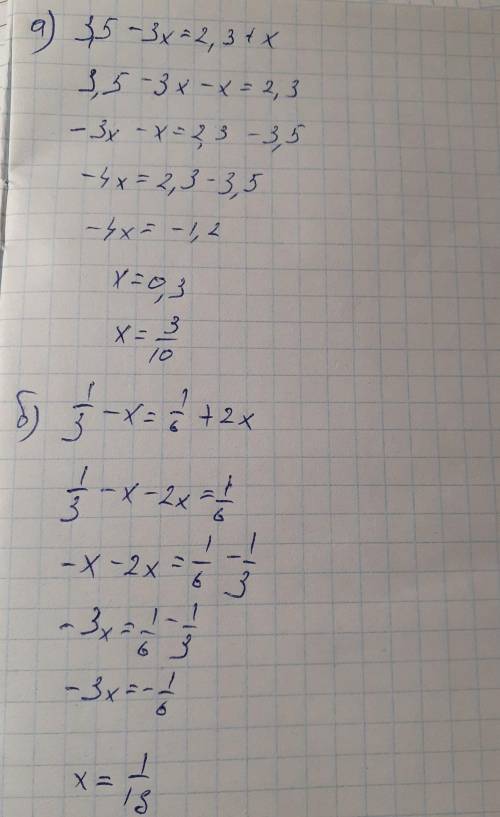 а) 3,5 - 3x = 2,3 + x
3,5 - 3x - x = 2,3
-3x - x = 2,3 - 3,5
-4x = 2,3 - 3,5
-4x = -1,2
x = 0,3
x = 3/10
б) 1/3 - x = 1/6 + 2x
1/3 - x - 2x = 1/6
-x - 2x = 1/6 - 1/3
-3x = 1/6 - 1/3
-3x = -1/6
x = 1/18